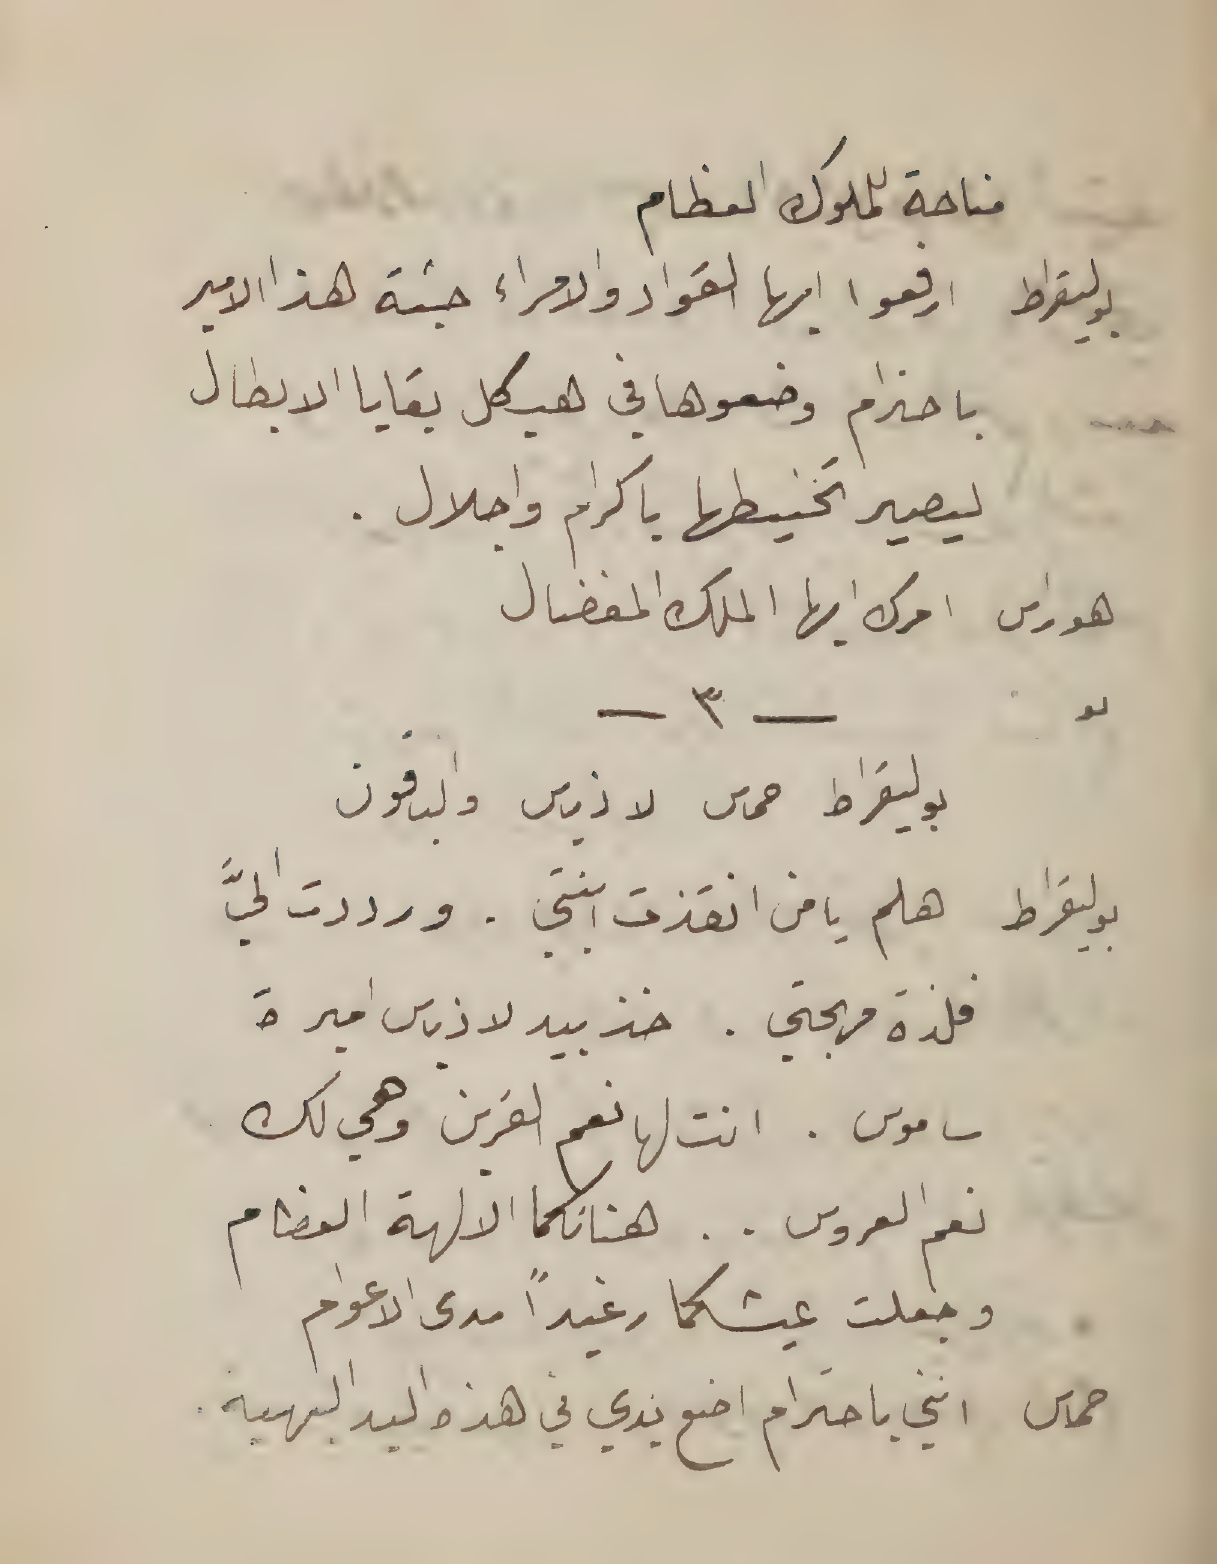 مناحة للملوك العظام
بوليقراط ارفعوا ايها القواد والامراء جثة هذا الامير
باحترام وضعوها في هيكل بقايا الابطال
ليصير تحنيطها باكرام واجلال .
هوراس امرك ايها الملك المفضال
— ٣ —
بوليقراط حماس لاذياس والباقون
بوليقراط هلم يا من انقذت ابنتي . ورددت اليَّ
فلذة مهجتي . خذ بيد لاذياس اميرة
ساموس . انت لها نعم القرين وهي لك
نعم العروس . . هنأتكما الالهة العظام
وجعلت عيشكما رغيداً مدى الاعوام
حماس انني باحترام اضع يدي في هذه اليد البهية .